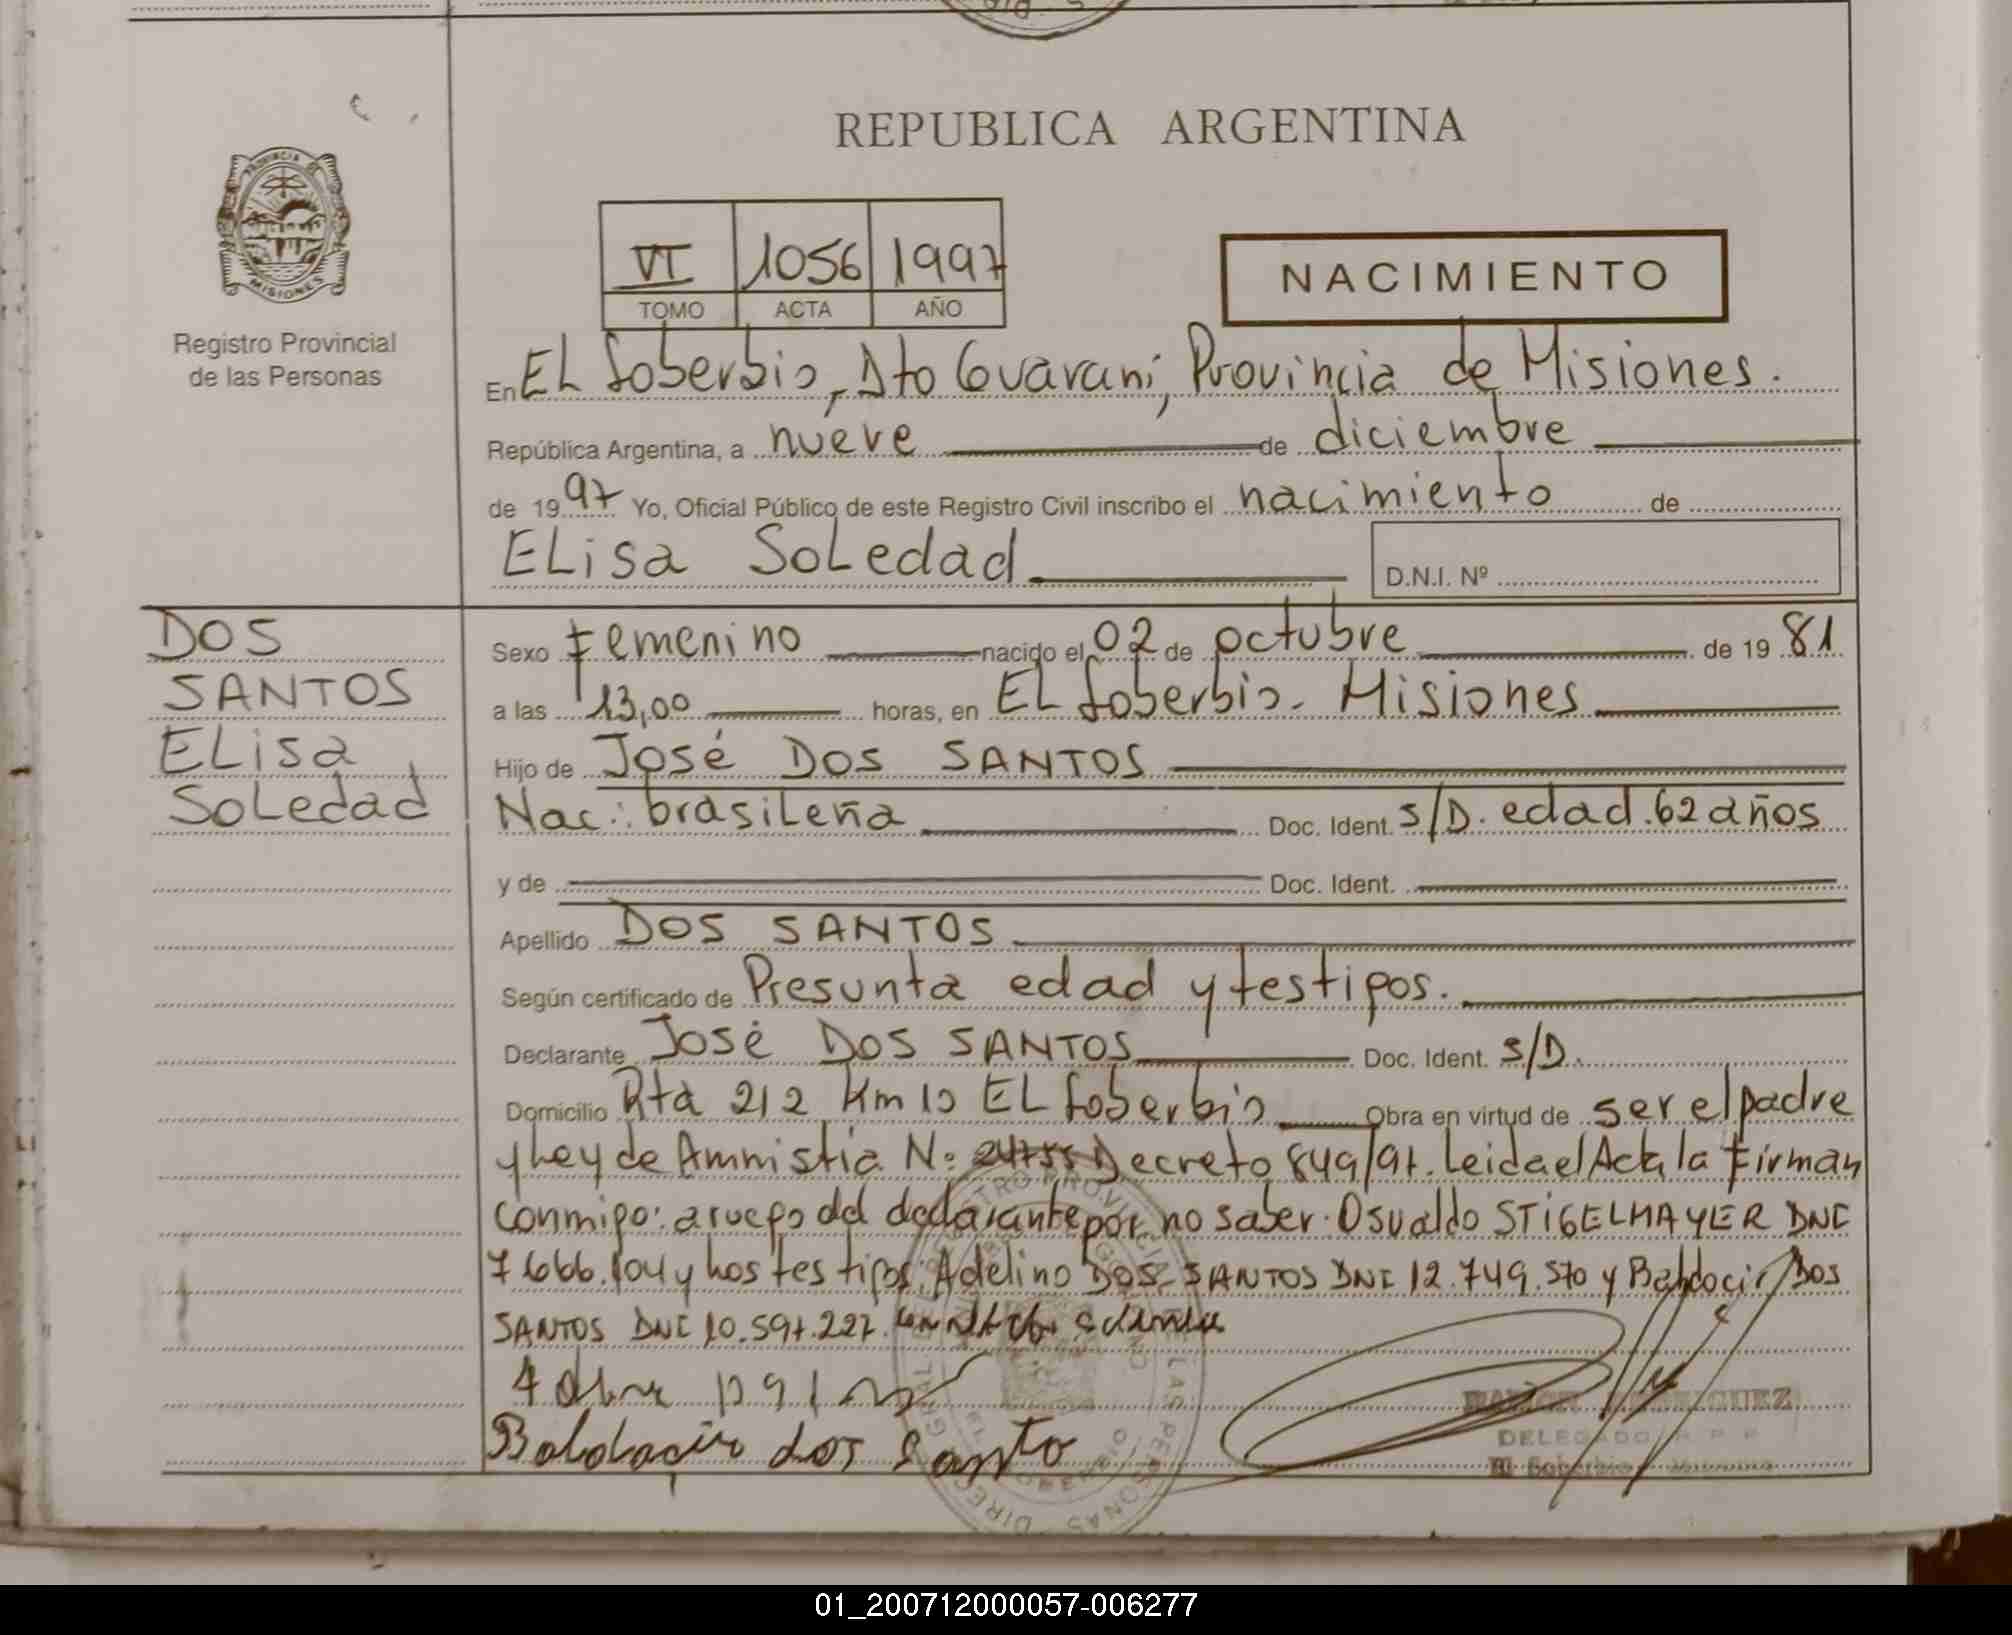 REPUBLICA ARGENTINA
PROVINCIA DE
MISIONES
Registro Provincial
de las Personas
VI 1056 1997
TOMO ACTA AÑO
NACIMIENTO
En EL Soberbio, Dto Guaraní, Provincia de Misiones.
República Argentina, a nueve de diciembre
de 1997 Yo, Oficial Público de este Registro Civil inscribo el nacimiento de
ELisa SoLedad
D.N.I. Nº
DOS
SANTOS
ELisa
SoLedad
Sexo Femenino nacido el 02 de octubre de 1981
a las 13,00 horas, en EL Soberbio. Misiones
Hijo de José DOS SANTOS
Nac: brasiLeña Doc. Ident. S/D. edad. 62 años
y de Doc. Ident.
Apellido DOS SANTOS
Según certificado de Presunta edad y testigos.
Declarante José DOS SANTOS Doc. Ident. S/D.
Domicilio Rta 212 Km 10 EL Soberbio Obra en virtud de ser el padre
y Ley de Amnistía Nº 24755 Decreto 849/97. Leida el Acta la Firman
conmigo: a ruego del declarante por no saber. Osvaldo STIGELMAYER DNI
7.666.104 y Los testigos: Adelino DOS SANTOS DNI 12.749.570 y Baldocir DOS
SANTOS DNI 10.597.227.
dos Santo
DELEGADO R P P
El Soberbio Misiones
01_200712000057-006277